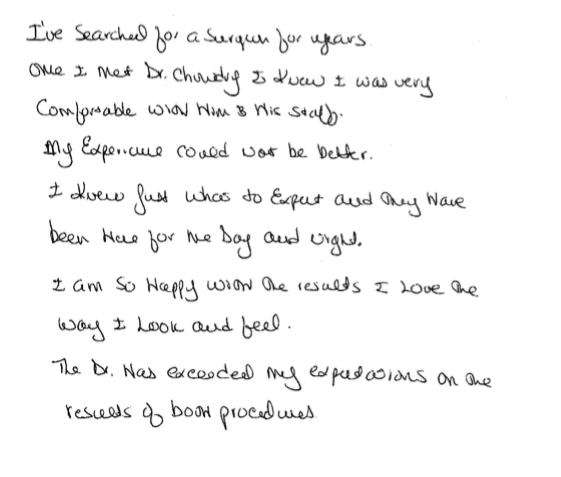 I've Searched for a Surgeon for years.
Once I met Dr. Chowdry I knew I was very
Comfortable with Him & His staff.
My Experience could not be better.
I knew just what to Expect and they Have
been Here for me Day and night.
I am so Happy with the results I Love the
way I Look and feel.
The Dr. Has exceeded my expectations on the
results of both procedures